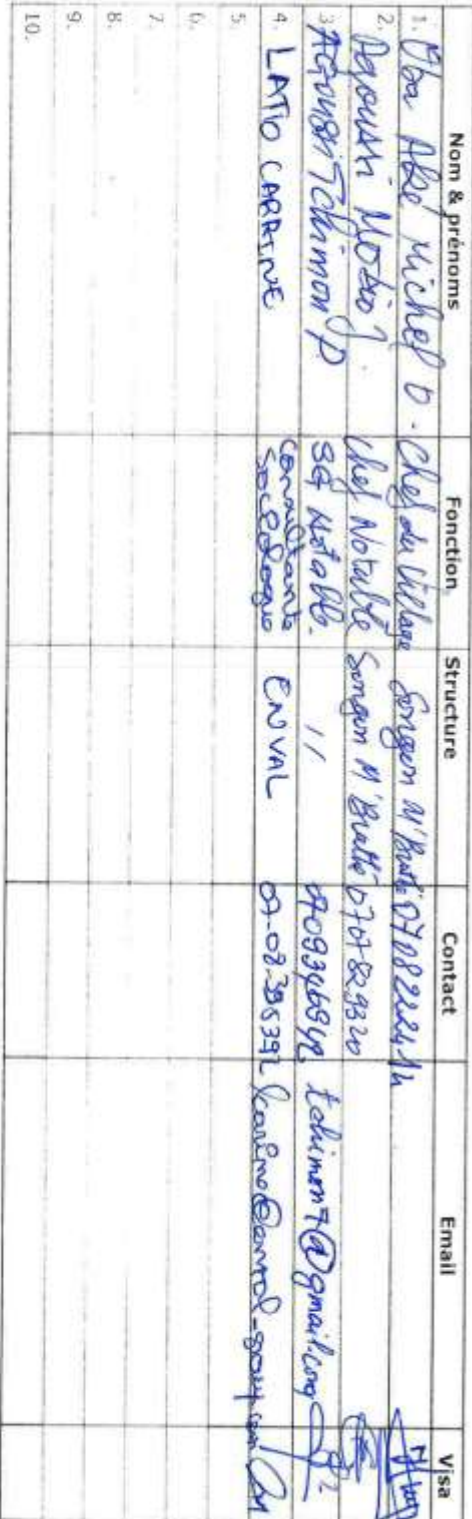 Nom & prénoms Fonction Structure Contact Email Visa
1. Oba Aké Michel D. Chef du Village Songon M'Brathé 0708222414
2. Agoussi Motio J. Chef Notable Songon M'Brathé 0707829320
3. AGoussi Tchimon P SG Notable. 11 tchimon7@gmail.com
4. LATIO CARRINE Consultante Sociologue ENVAL 07-08-395392
5.
6.
7.
8.
9.
10.